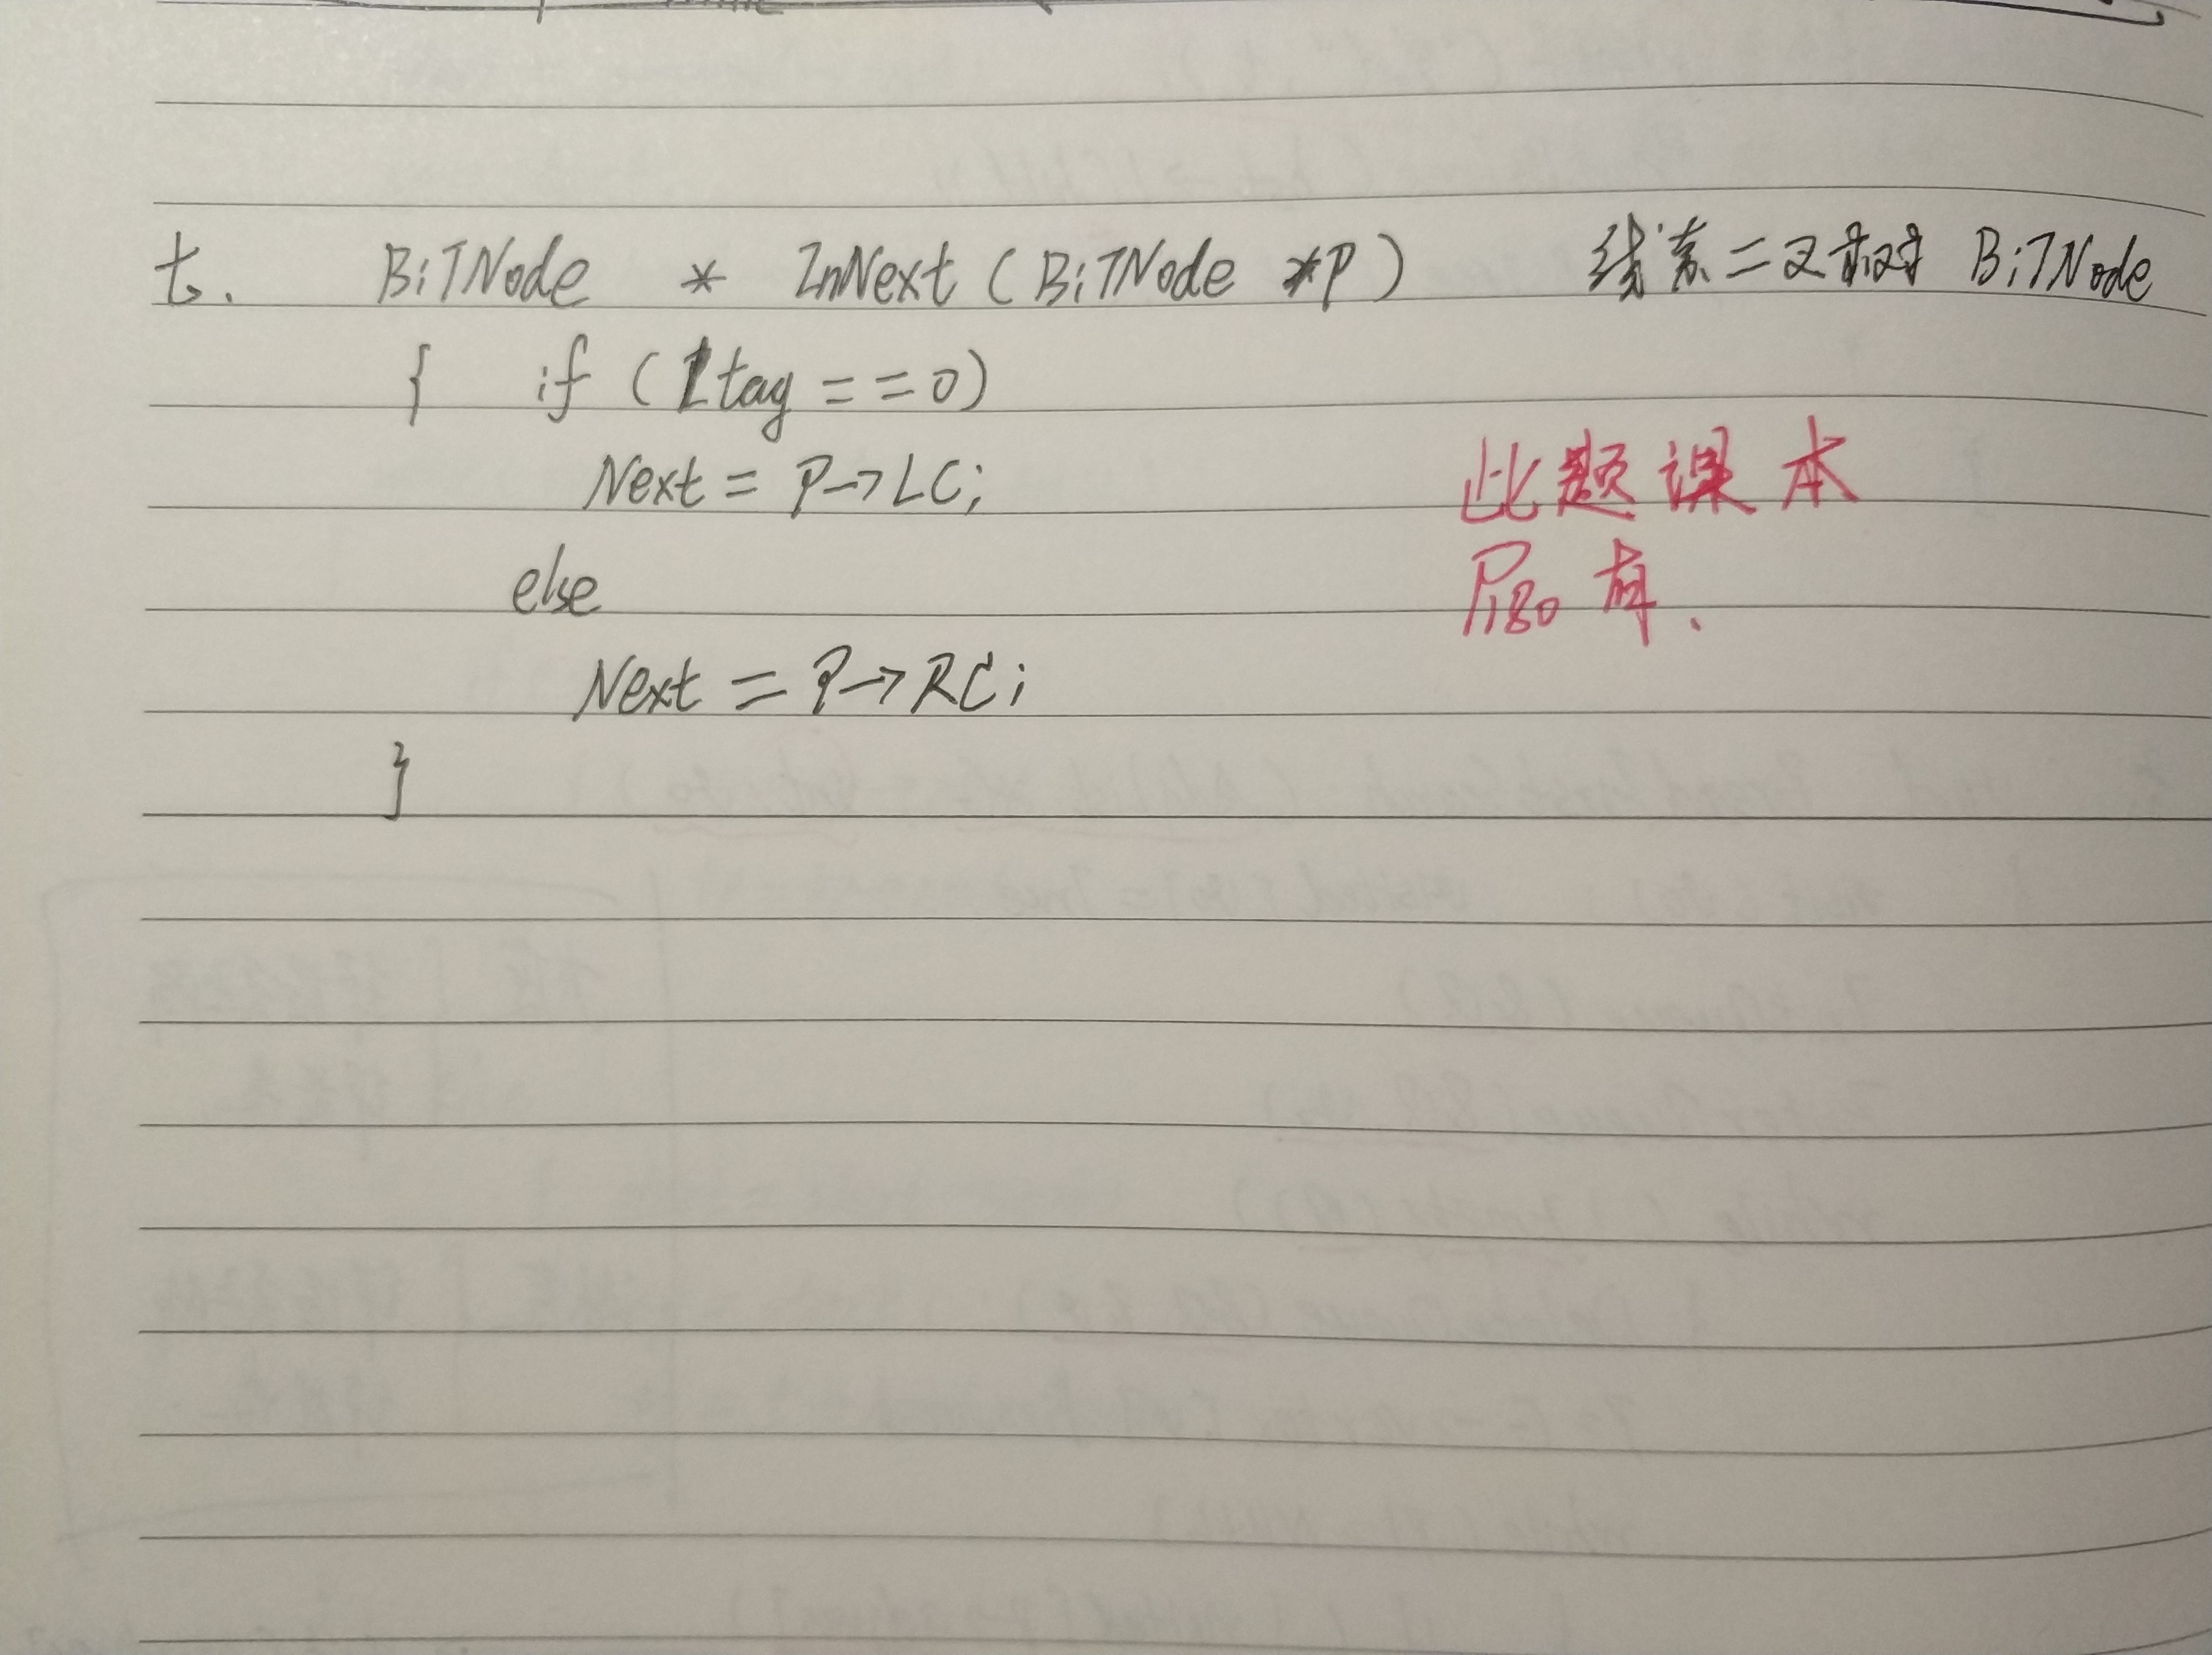 七. BiTNode * InNext (BiTNode *P) 线索二叉树对 BiTNode
{ if (Ltag == 0)
Next = P→LC;
else
Next = P→RC;
}
此题课本
P180 有.